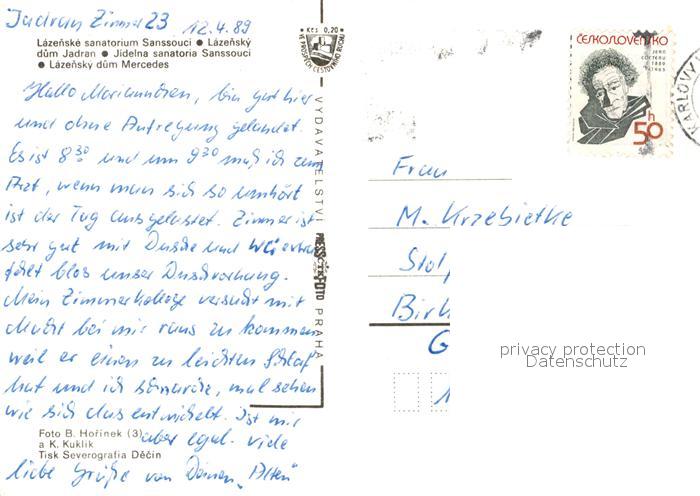 Jadran Zimmer 23 12.4.89
Lázeňské sanatorium Sanssouci ● Lázeňský
dům Jadran ● Jídelna sanatoria Sanssouci
● Lázeňský dům Mercedes
Hallo Mariannchen, bin gut hier
und ohne Aufregung gelandet.
Es ist 8³⁰ und um 9³⁰ muß ich zum
Arzt, wenn man sich so umhört
ist der Tag ausgelastet. Zimmer ist
sehr gut mit Dusche und WC extra
fehlt blos unser Duschvorhang.
Mein Zimmerkollege versucht mit
Macht bei mir raus zu kommen
weil er einen zu leichten Schlaf
hat und ich schnarche, mal sehen
wie sich das entwickelt. Ist mir
aber egal. viele
liebe Grüße von Deinen „Alten"
Foto B. Hořínek (3)
a K. Kuklík
Tisk Severografia Děčín
Kčs 0,20
VE PROSPĚCH CESTOVNÍHO RUCHU
VYDAVATELSTVÍ PRESSFOTO PRAHA
ČESKOSLOVENSKO
JEAN
COCTEAU
1889
1963
50h
KARLOVY
Frau
M. Krzebietke
Stol
Birk
G
1
privacy protection
Datenschutz